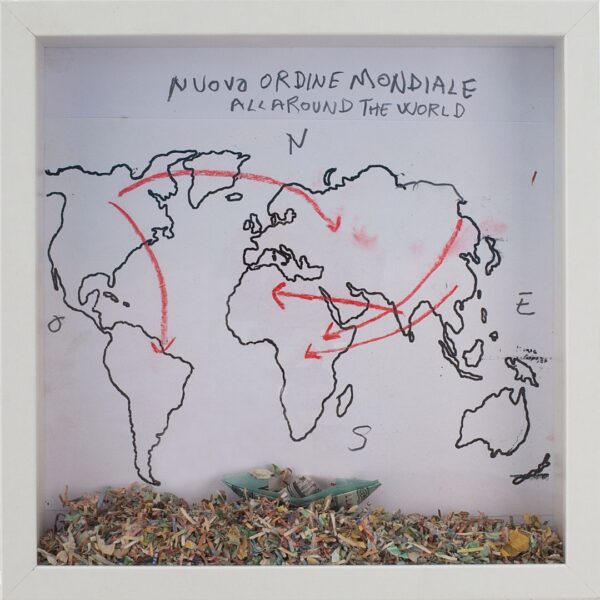 NUOVO ORDINE MONDIALE
ALL AROUND THE WORLD
N
O
E
S